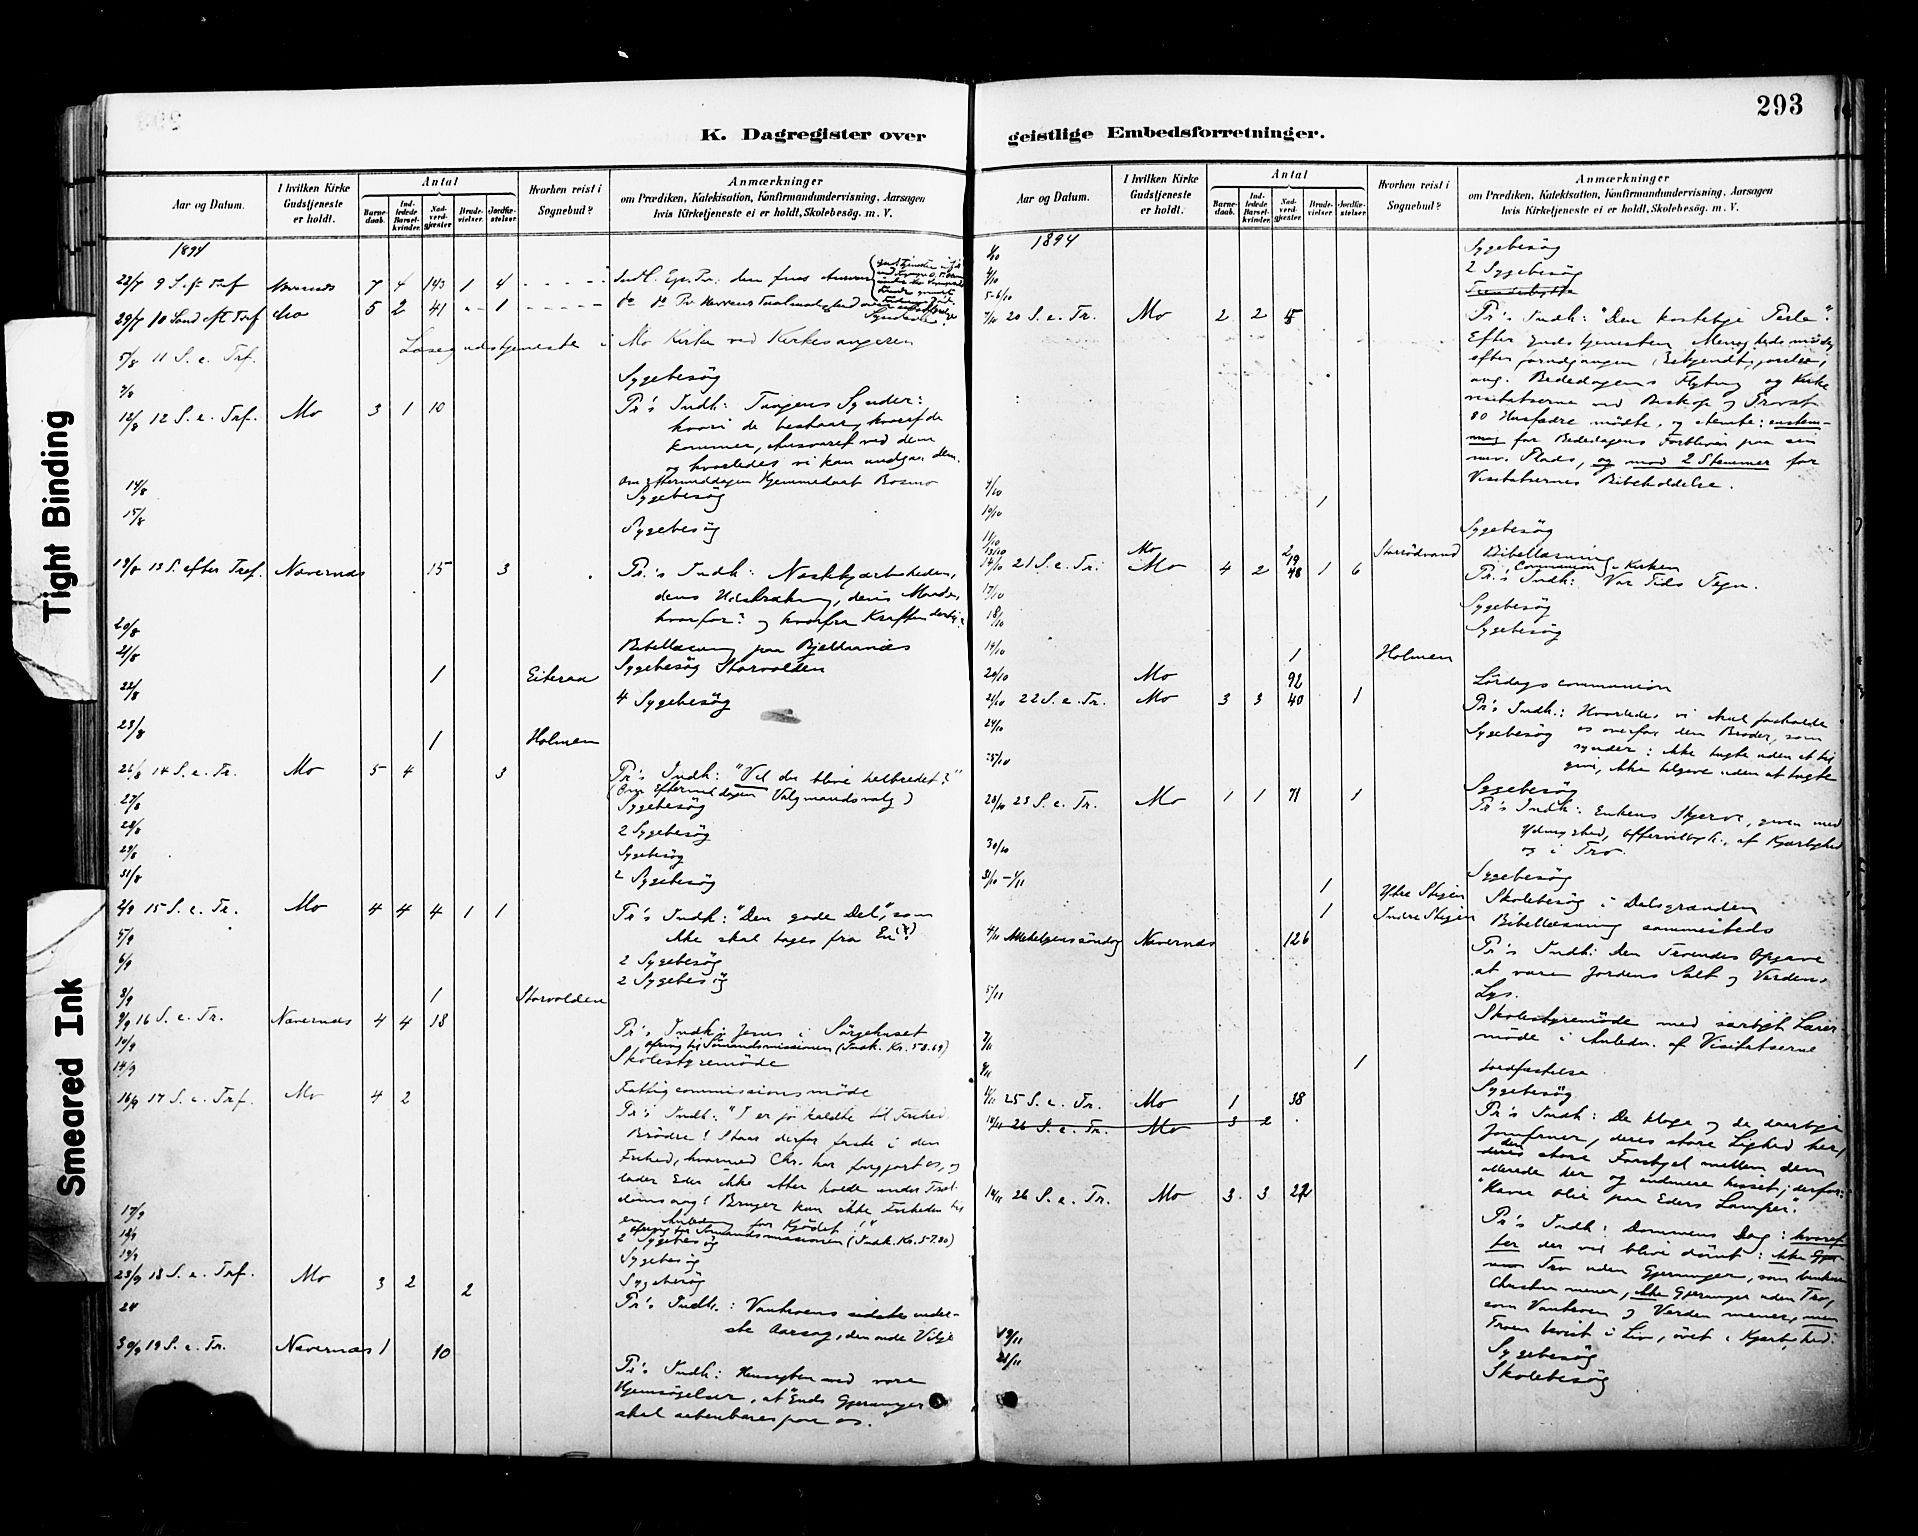 293
K. Dagregister over
geistlige Embedsforretninger.
Tight Binding
Smeared Ink
Aar og Datum.
I hvilken Kirke
Gudstjeneste
er holdt.
Antal
Barne-
daab.
Ind-
ledede
Barsel-
kvinder.
Nad-
verd-
gjæster
Brude-
vielser
Jordfæ-
stelser
Hvorhen reist i
Sognebud?
Anmærkninger
om Prædiken, Katekisation, Konfirmandundervisning, Aarsagen
hvis Kirketjeneste ei er holdt, Skolebesög. m. V.
1894
22/7 9 S. eft Tref 7 4 143 1 4
29/7 10 Sønd eft Tref Mo 5 2 41 1
5/8 11 S. e. Trf. Læsegudstjeneste i Mo Kirke ved Kirkesangeren
Sygebesög
12/8 12 S. e. Trf. Mo 3 1 10 Pr's Indh: Tungens Synder:
hvori de bestaar, hvoraf de
kommer, Ansvaret ved dem
og hvorledes vi kan undgaa dem.
14/8 Om Eftermiddagen Hjemmedaab
Sygebesög
15/8 Sygebesög
19/8 13 S. efter Tref. Nævernæs 15 3 Pr.'s Indh: Næstekjærligheden,
dens Udstrækning, dens Maade,
hvorfor? og hvorfra Kraften dertil?
20/8
21/8 Bibellæsning paa Bjellaanæs
1 Eiteraa Sygebesög Storvolden
22/8 4 Sygebesög
23/8 1 Holmen
26/8 14 S. e. Tr. Mo 5 4 3 Pr's Indh: "Vil du blive helbredet?"
(Om Eftermiddagen Valgmandsvalg)
27/8 Sygebesög
28/8 2 Sygebesög
29/8 Sygebesög
31/8 2 Sygebesög
2/9 15 S. e. Tr. Mo 4 4 4 1 1 Pr's Indh: "Den gode Del", som
ikke skal tages fra En
5/9
6/9 2 Sygebesög
2 Sygebesög
8/9 1 Storvolden
9/9 16 S. e. Tr. Nævernæs 4 4 18 Pr's Indh: Jesus i Sørgehuset
Ofring til Sømandsmissionen (Indk. Kr. 58.69)
14/9 Skolestyremöde
Fattigcommissionsmöde
16/9 17 S. e. Trf. Mo 4 2
Pr's Indh: "I er jo kaldte til Frihed,
Brödre! Staar derfor faste i den
Frihed, hvormed Chr. har frigjort os, og
lader Eder ikke atter holde under Træl-
doms aag! Bruger kun ikke Friheden til
en Anledning for Kjödet!"
Ofring til Sømandsmissionen (Indk. Kr. 57.80)
17/9 2 Sygebesög
18/9 Sygebesög
19/9 Sygebesög
23/9 18 S. e. Trf. Mo 3 2 2
Pr's Indh.: Vantroens sidste inder-
ste Aarsag, den onde Vilje
24
30/9 19 S. e. Tr. Nævernæs 1 10
Pr's Indh: Hensigten med vore
Hjemsögelser, at "Guds Gjerninger
skal aabenbares paa os."
Aar og Datum.
I hvilken Kirke
Gudstjeneste
er holdt.
Antal
Barne-
daab.
Ind-
ledede
Barsel-
kvinder.
Nad-
verd-
gjæster
Brude-
vielser
Jordfæ-
stelser
Hvorhen reist i
Sognebud?
Anmærkninger
om Prædiken, Katekisation, Konfirmandundervisning, Aarsagen
hvis Kirketjeneste ei er holdt, Skolebesög. m. V.
1894
Sygebesög
4/10 2 Sygebesög
5-6/10
7/10 20 S. e. Tr. Mo 2 2 Pr's Indh: "Den kostelige Perle".
Efter Gudstjenesten Menighedsmöde,
efter forudgangen Bekjendtgjørelse,
ang. Bededagens Flytning og Kirke
visitatserne ved Biskop og Provst.
80 Husfædre mödte, og stemte: enstem-
mig for Bededagens Forbliven paa sin
nuv. Plads, og mod 2 Stemmer for
Visitatsernes Bibeholdelse.
19/10 1
Sygebesög
13/10 Mo 2 19 Storrödvand Bibellæsning
Communion i Kirken
14/10 21 S. e. Tr. Mo 4 2 48 1 6 Pr.'s Indh: Vor Tids Tegn.
17/10 Sygebesög
18/10 Sygebesög
19/10 1 Holmen
20/10 Mo 92 Lördags communion
21/10 22 S. e. Tr. Mo 3 3 40 1 Pr's Indh.: Hvorledes vi skal forholde
os overfor den Broder, som
synder: ikke tugte uden at til
give, ikke tilgive uden at tugte
24/10 Sygebesög
25/10 Sygebesög
28/10 23 S. e. Tr. Mo 1 1 71 1 Pr's Indh: Enkens Skjerv, given med
Ydmyghed, af Kjærlighed
og i Tro.
30/10 Sygebesög
31/10 - 1/11 1 Ytre Stigen Skolebesög i Dalsgrænden
1 Indre Stigen Bibellæsning sammesteds
4/11 Allehelgenssöndag Nævernæs 126 Pr's Indh: Den Troendes Opgave
at være Jordens Salt og Verdens
Lys.
5/11 Skolestyremöde med særligt Lærer
möde i Anledn. af Visitatserne
7/11
1 Jordfæstelse
Sygebesög
11/11 25 S. e. Tr. Mo 1 38 Pr's Indh: De kloge og de daarlige
Jomfruer, deres store Lighed her,
den store Forskjel mellem dem
allerede her og endmere hisset; derfor:
"Haver Olie paa Eders Lamper".
18/11 26 S. e. Tr. Mo 3 2
18/11 26 S. e. Tr. Mo 3 3 Pr's Indh: Dommens Dag: hvoref
ter der vil blive dömt: ikke
Tro uden Gjerninger, som
Christen mener, ikke Gjerninger uden Tro,
som Vantroen og Verden mener, men
Troen levet i Liv, övet i Kjærlighed.
19/11 Sygebesög
21/11 Skolebesög